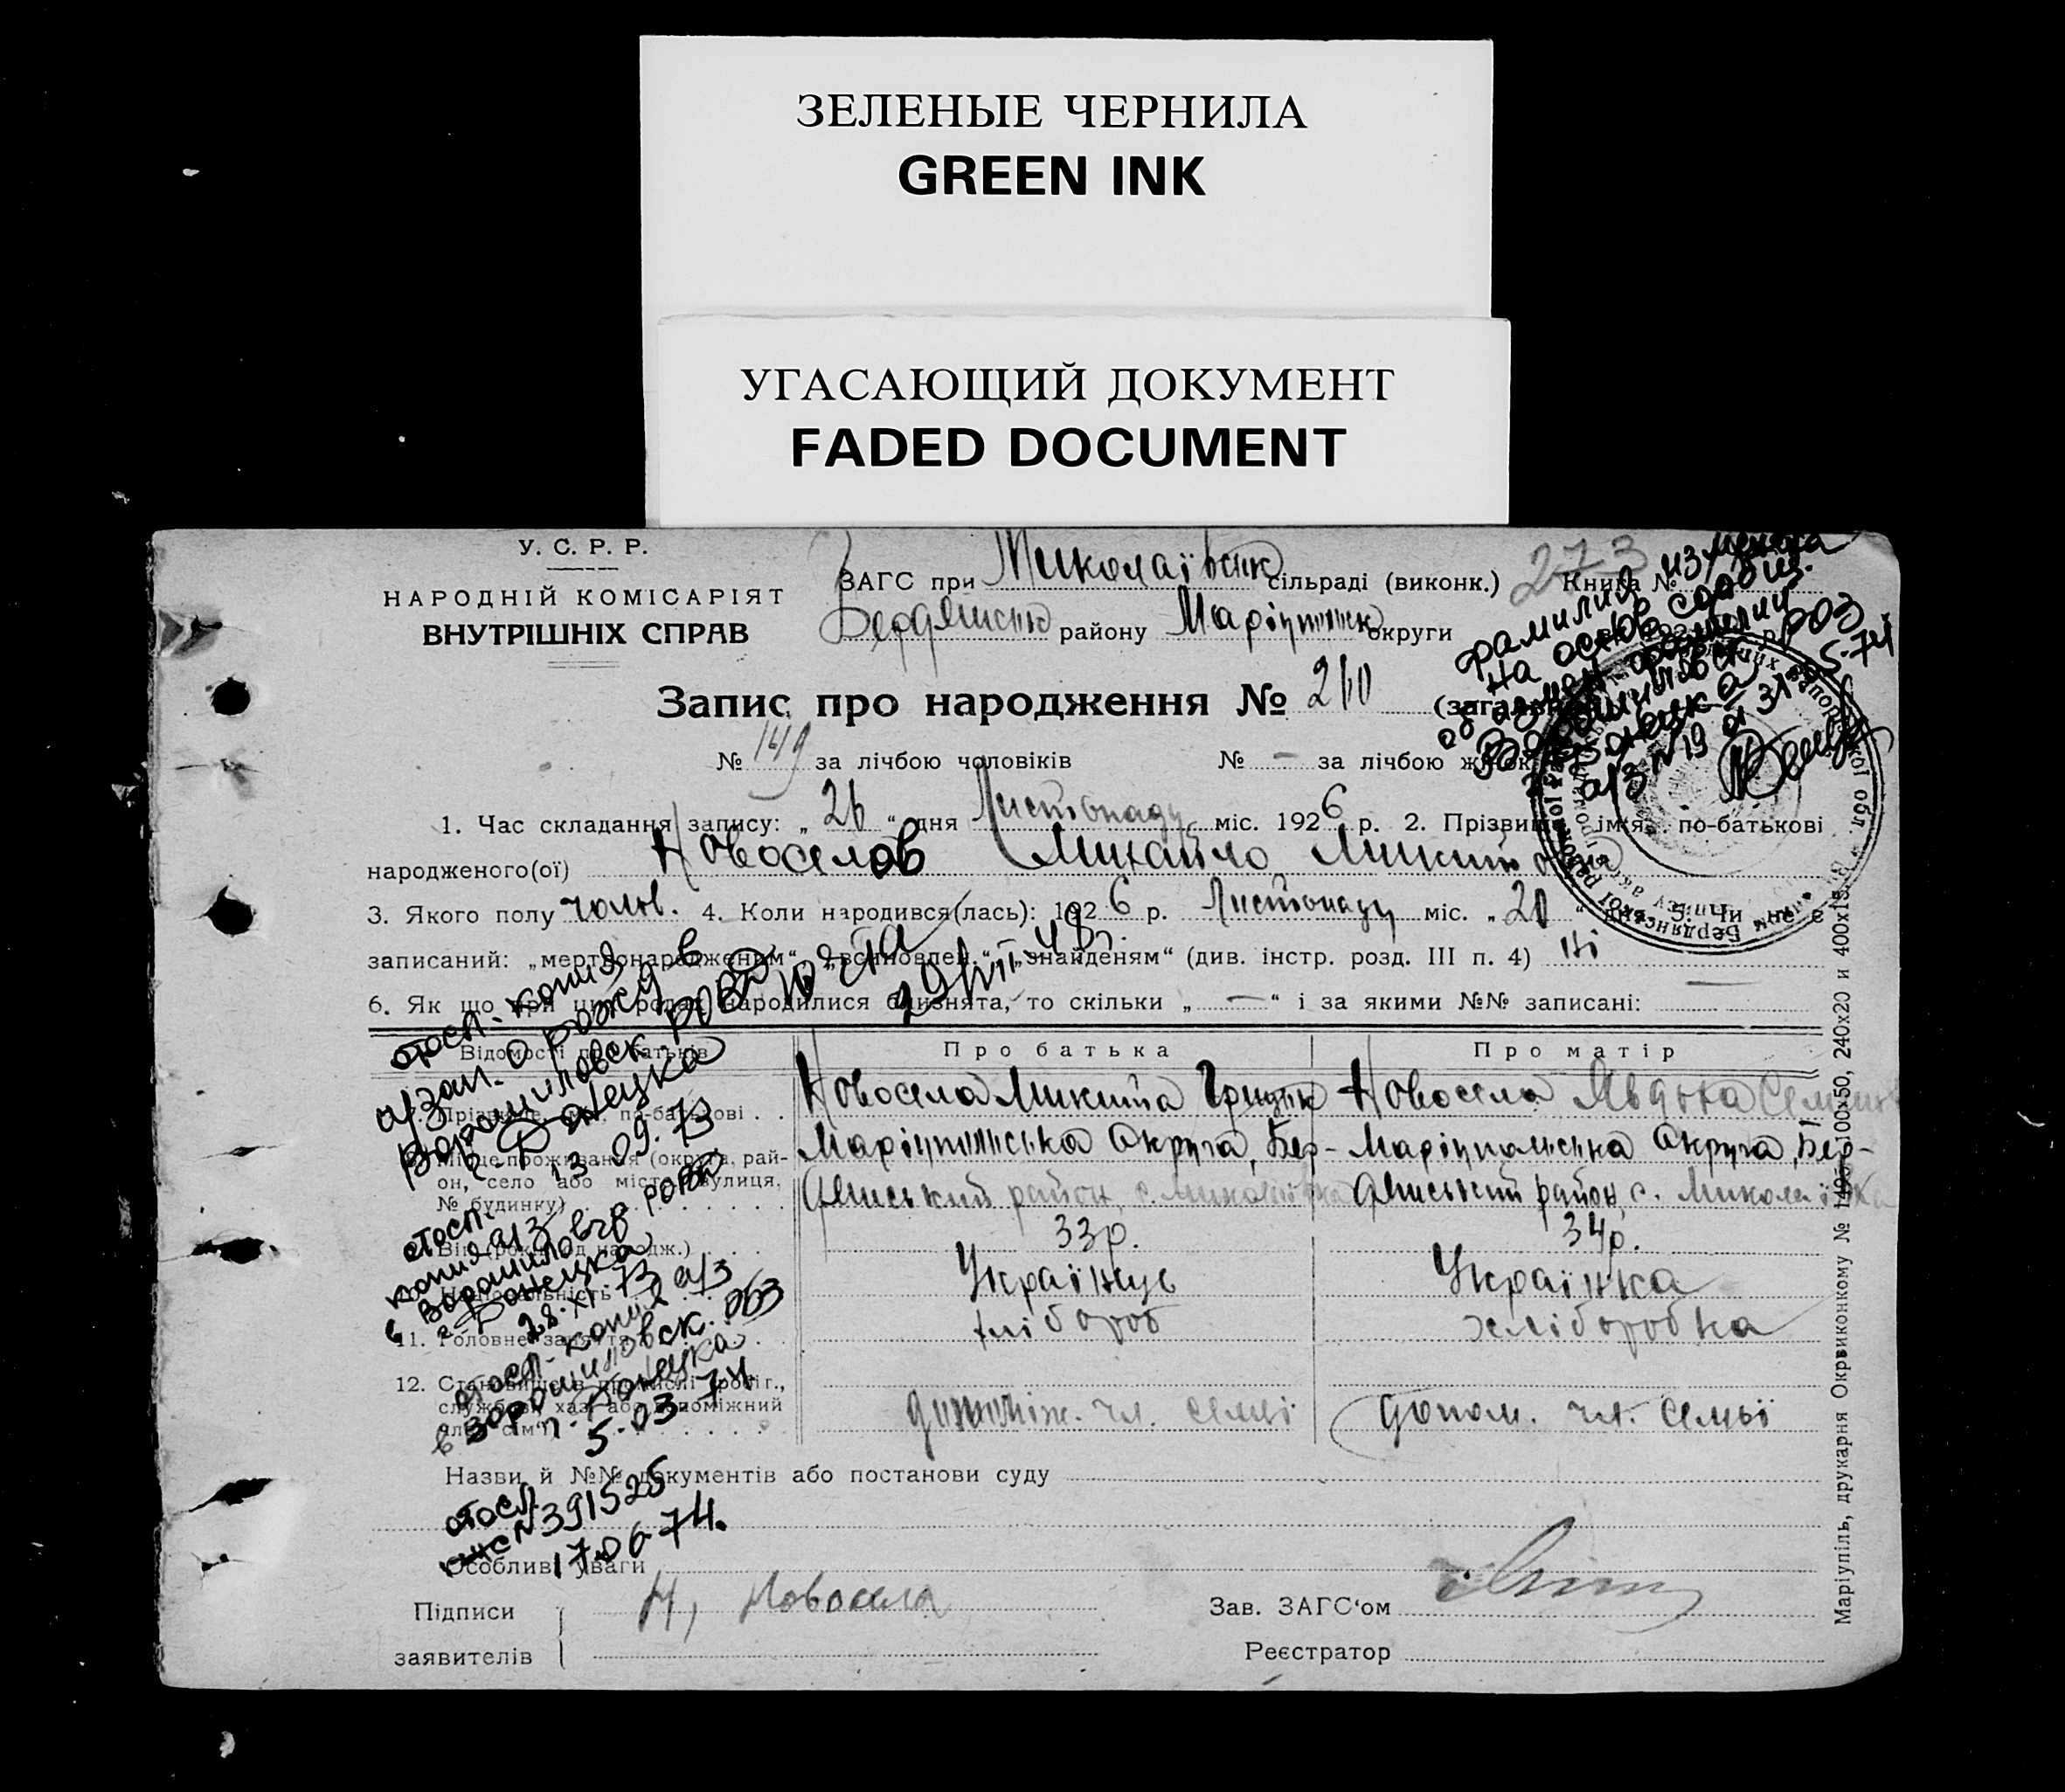 ЗЕЛЕНЫЕ ЧЕРНИЛА
GREEN INK
УГАСАЮЩИЙ ДОКУМЕНТ
FADED DOCUMENT
У. С. Р. Р.
НАРОДНІЙ КОМІСАРІЯТ
ВНУТРІШНІХ СПРАВ
ЗАГС при Миколаївськ сільраді (виконк.) Книга №
273
Бердянськ району Маріупільськ округи
Запис про народження № 210
№ 149 за лічбою чоловіків № — за лічбою
фамилия изменена
на основ.
1. Час складання запису: „ 26 “ дня Листопаду міс. 1926 р. 2. Прізвище, ім'я, по-батькові
народженого(ої) Новоселов Михайло Микитов
3. Якого полу чолов. 4. Коли народився(лась): 1926 р. Листопаду міс. „ 20 “ дня 5. Чи не є
записаний: „мертвонародженим“ „всиновлен.“ „знайденям“ (див. інстр. розд. III п. 4) Ні
6. Як що при цих родах народилися близнята, то скільки „ — “ і за якими №№ записані:
29/VIII 48г.
Відомості про батьків
Про батька
Про матір
Прізвище, ім'я, по-батькові
Новосела Микита Грицьк
Новосела Явдоха Семенів
Місце проживання (округа, рай-
он, село або місто, вулиця,
№ будинку)
Маріупільська Округа, Бер-
дянський район, с. Миколаївка
Маріупольська Округа, Бер-
дянський район, с. Миколаївка
Вік (роки від народж.)
33р.
34р.
Національність
Українец
Українка
11. Головне заняття
хлібороб
хліборобка
12.
допоміж. чл. семьї
допом. чл. семьї
отосл. копия
а/зап. о рожд. в
Ворошиловск. РОЗАГС
г. Донецка
13.09.73
отосл.
копия а/з
в Ворошиловск
г. Донецка
28.XI.73
отосл. копия а/з
в Ворошиловск.
г. Донецка
5.03.74
Назви й №№ документів або постанови суду
отосл.
№ 391525
17.06.74.
Особливі уваги
Підписи
заявителів
Н, Новосела
Зав. ЗАГС'ом
Реєстратор
Маріупіль, друкарня Окрвиконкому № 1495—100х50, 240х20 и 400х15